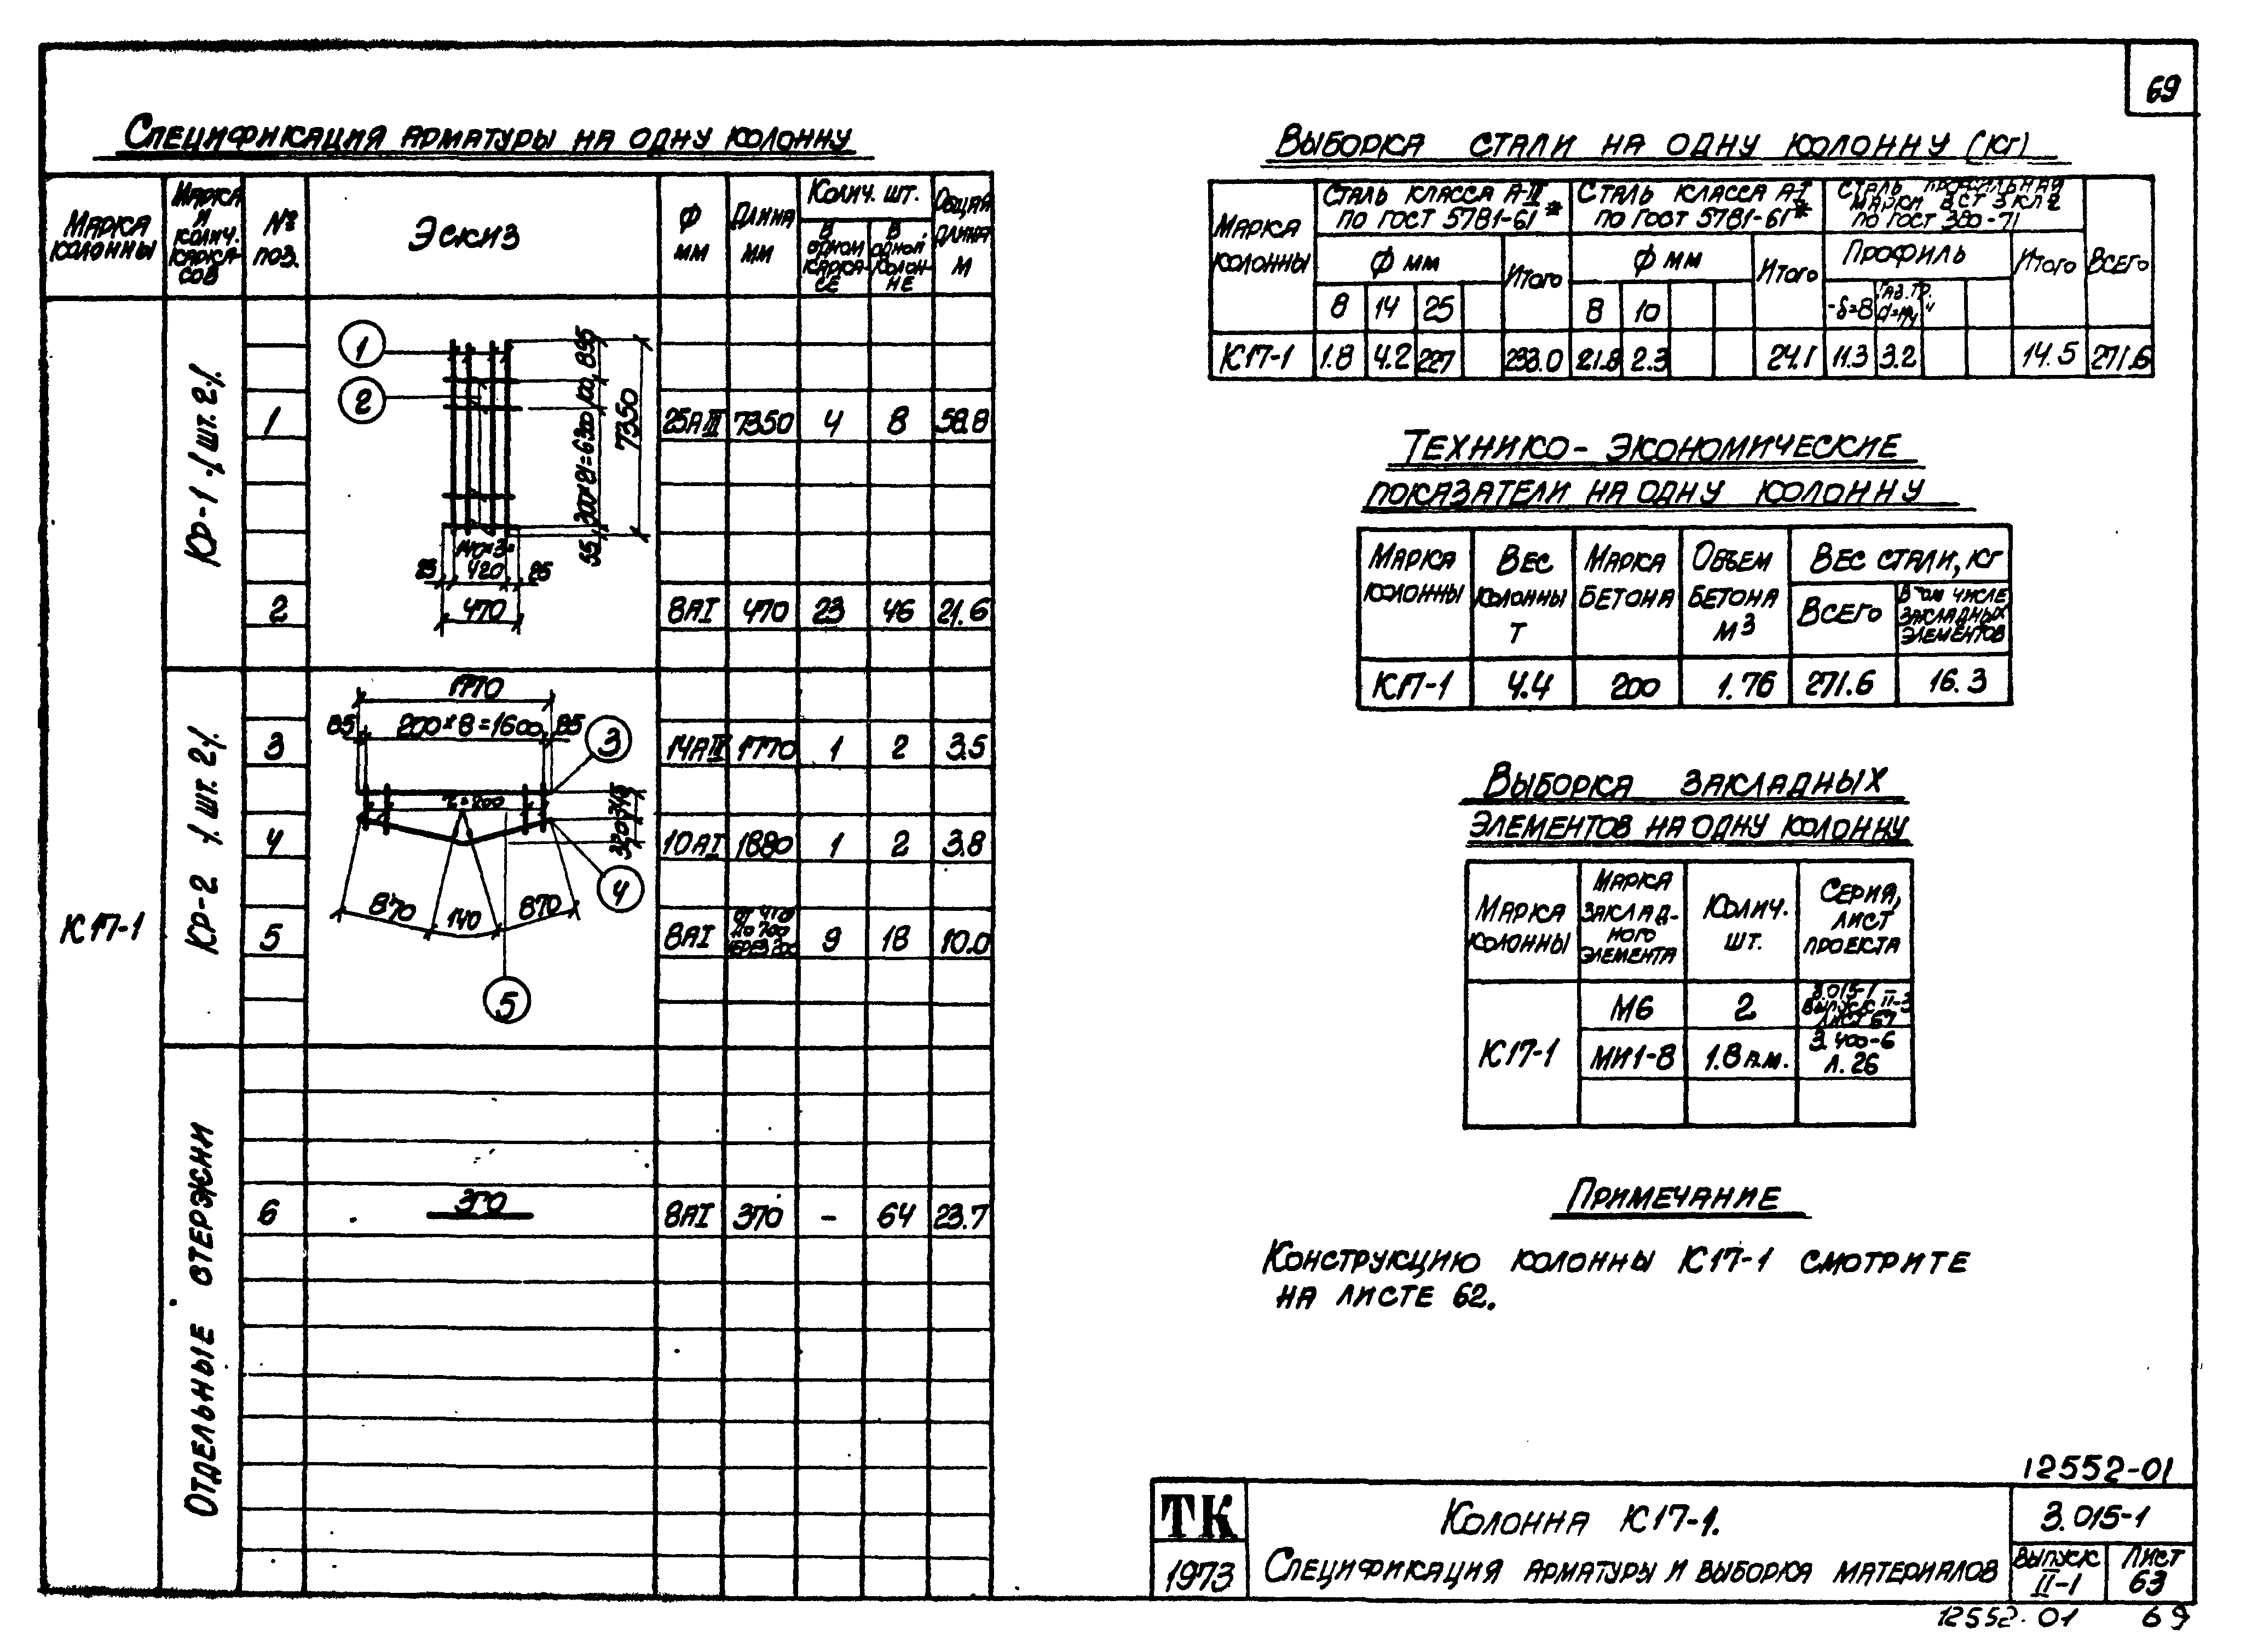 69
Спецификация арматуры на одну колонну
Марка колонны
Марка и колич. каркасов
№ поз.
Эскиз
Ф мм
Длина мм
Колич. шт.
В одном каркасе
В одной колонне
Общая длина м
К17-1
КР-1 /шт. 2/.
1
25АIII 7350 4 8 58.8
2
8АI 470 23 46 21.6
1
2
895
100
200×21=6300
55
7350
140×3=
420
25
25
470
КР-2 /шт. 2/.
3
14АIII 1770 1 2 3.5
4
10АI 1880 1 2 3.8
5
8АI
до 700
9 18 10.0
1770
85 200×8=1600 85
3
4
5
870 140 870
Отдельные стержни
6
370
8АI 370 – 64 23.7
Выборка стали на одну колонну (кг)
Марка колонны
Сталь класса А-III
по ГОСТ 5781-61*
Сталь класса А-I
по ГОСТ 5781-61*
Сталь профильная
марки ВСТ 3 кл 2
по ГОСТ 380-71
Всего
Ф мм
Итого
Ф мм
Итого
Профиль
Итого
8 14 25
8 10
-δ=8
Газ. тр.
К17-1 1.8 4.2 227 233.0 21.8 2.3 24.1 11.3 3.2 14.5 271.6
Технико-экономические
показатели на одну колонну
Марка колонны
Вес колонны т
Марка бетона
Объем бетона м3
Вес стали, кг
Всего
В том числе закладных элементов
К17-1 4.4 200 1.76 271.6 16.3
Выборка закладных
элементов на одну колонну
Марка колонны
Марка закладного элемента
Колич. шт.
Серия, лист проекта
К17-1
М6 2
3.015-1
выпуск II-3
лист 67
МИ1-8 1.8 п.м.
3.400-6
л. 26
Примечание
Конструкцию колонны К17-1 смотрите
на листе 62.
12552-01
ТК
1973
Колонна К17-1.
Спецификация арматуры и выборка материалов
3.015-1
Выпуск
II-1
Лист
63
12552-01 69